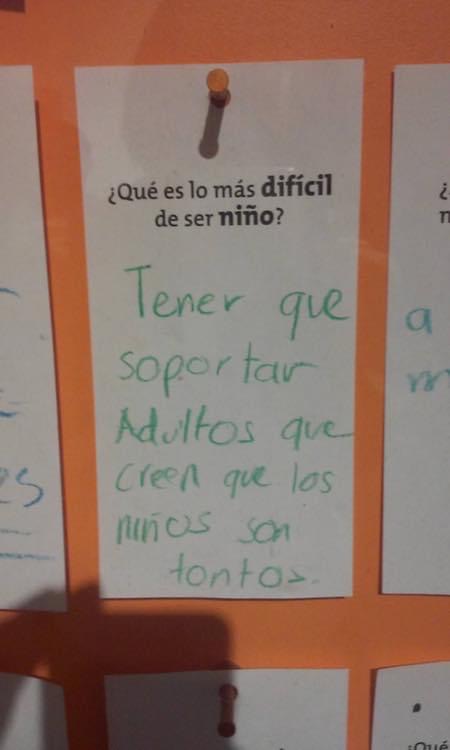 ¿Qué es lo más difícil
de ser niño?
Tener que
soportar
Adultos que
creen que los
niños son
tontos.
¿
a
es
¿Qué